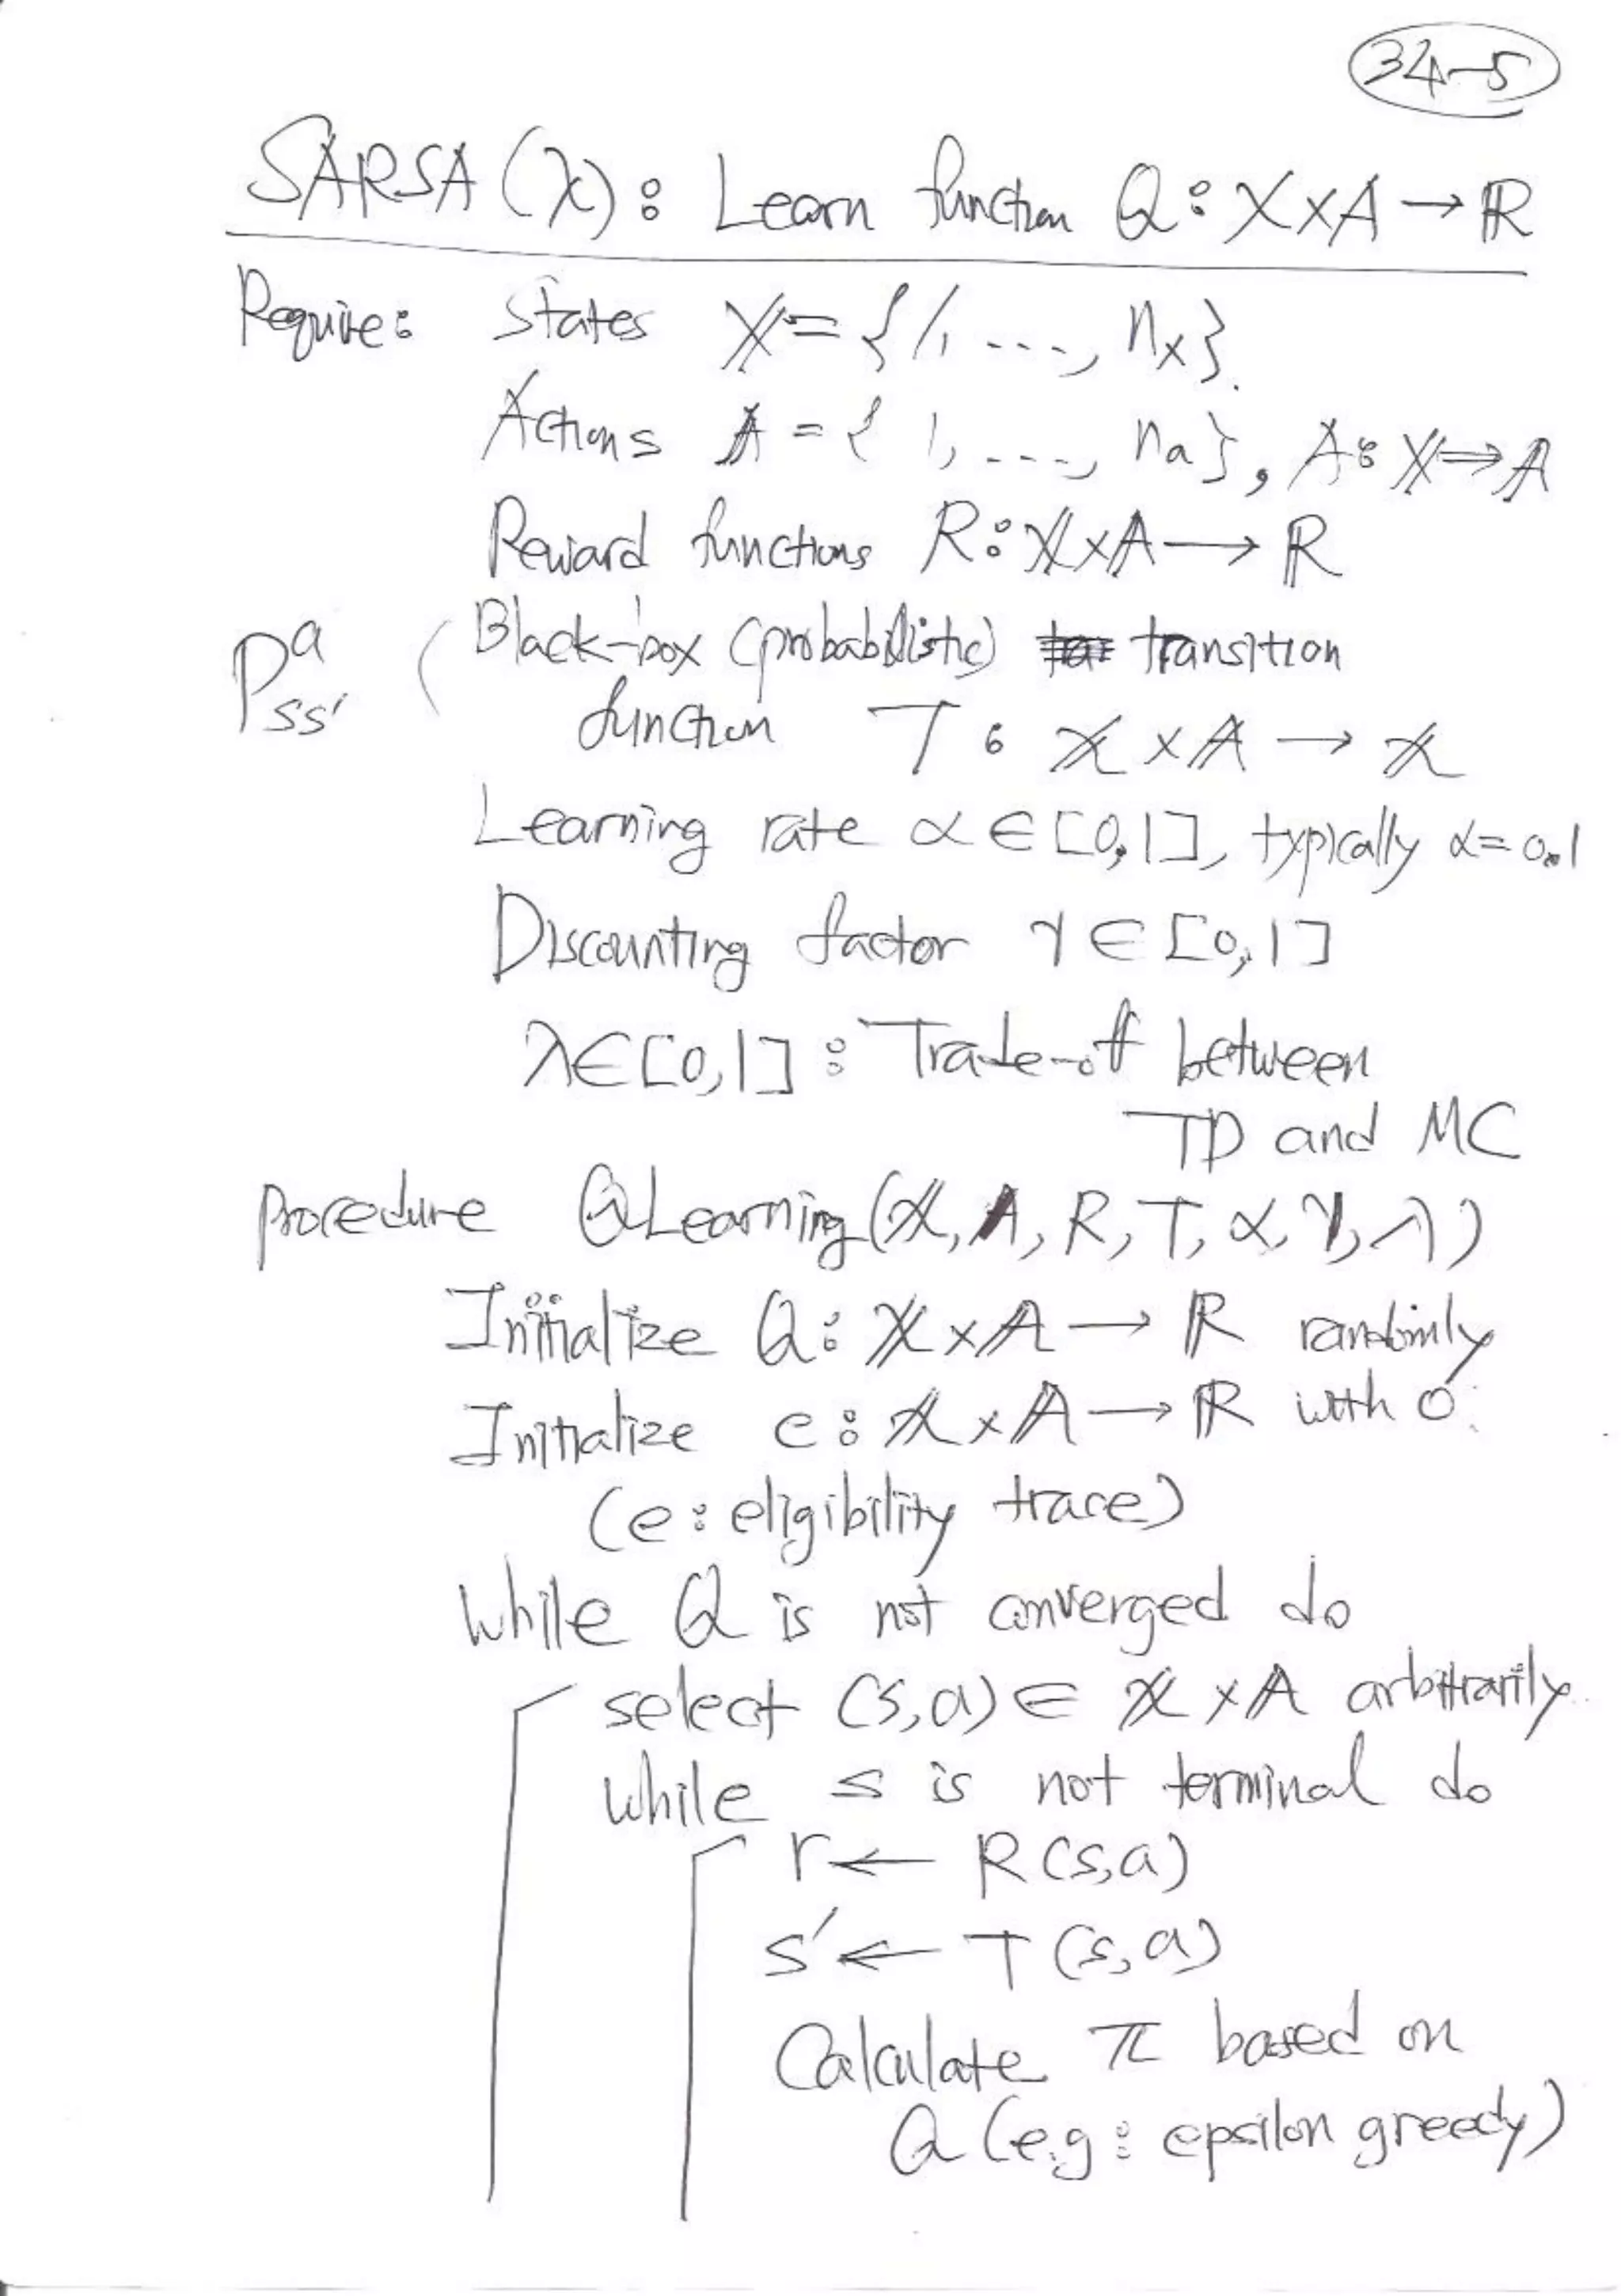 34-5
SARSA(λ): Learn function Q: X×A → ℝ
Require: States 𝕏 = {1, ..., nₓ}.
Actions 𝔸 = { 1, ..., nₐ}, A: 𝕏 ⇒ 𝔸
Reward functions R: 𝕏×𝔸 → ℝ
P^a_ss' ( Black-box (probabilistic) transition
function T: 𝕏 × 𝔸 → 𝕏
Learning rate α ∈ [0,1], typically α = 0.1
Discounting factor γ ∈ [0,1]
λ ∈ [0,1] : Trade-off between
TD and MC
procedure QLearning(𝕏, A, R, T, α, γ, λ)
Initialize Q: 𝕏×𝔸 → ℝ randomly
Initialize e: 𝕏×𝔸 → ℝ with 0.
(e: eligibility trace)
While Q is not converged do
select (s,a) ∈ 𝕏 × 𝔸 arbitrarily
while s is not terminal do
r ← R(s,a)
s' ← T(s,a)
Calculate π based on
Q (e.g: epsilon greedy)